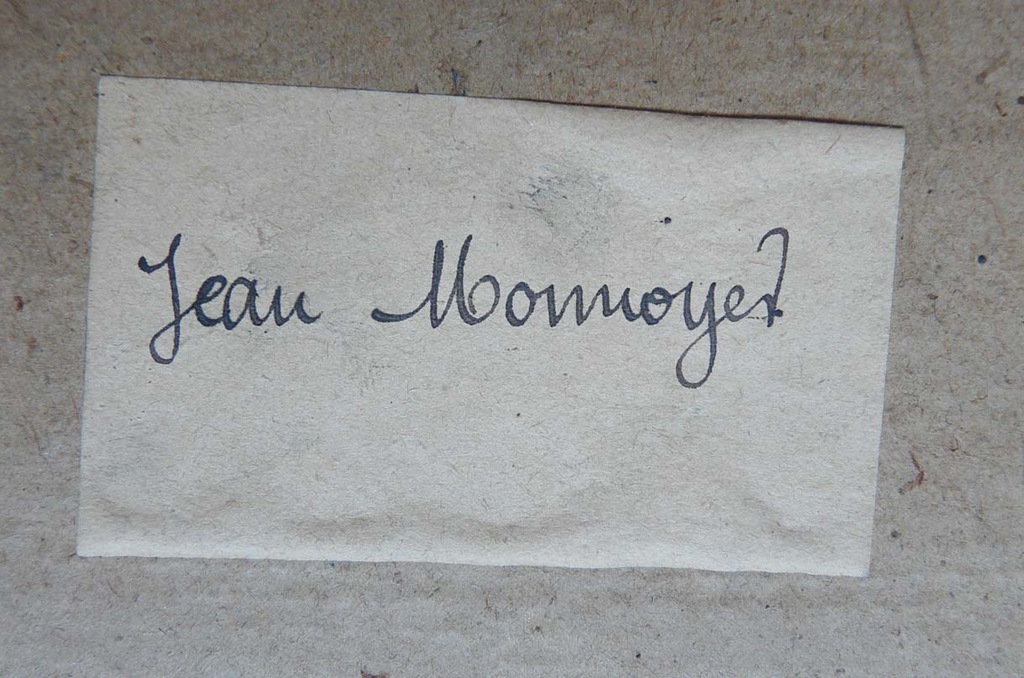 Jean Monnoyer